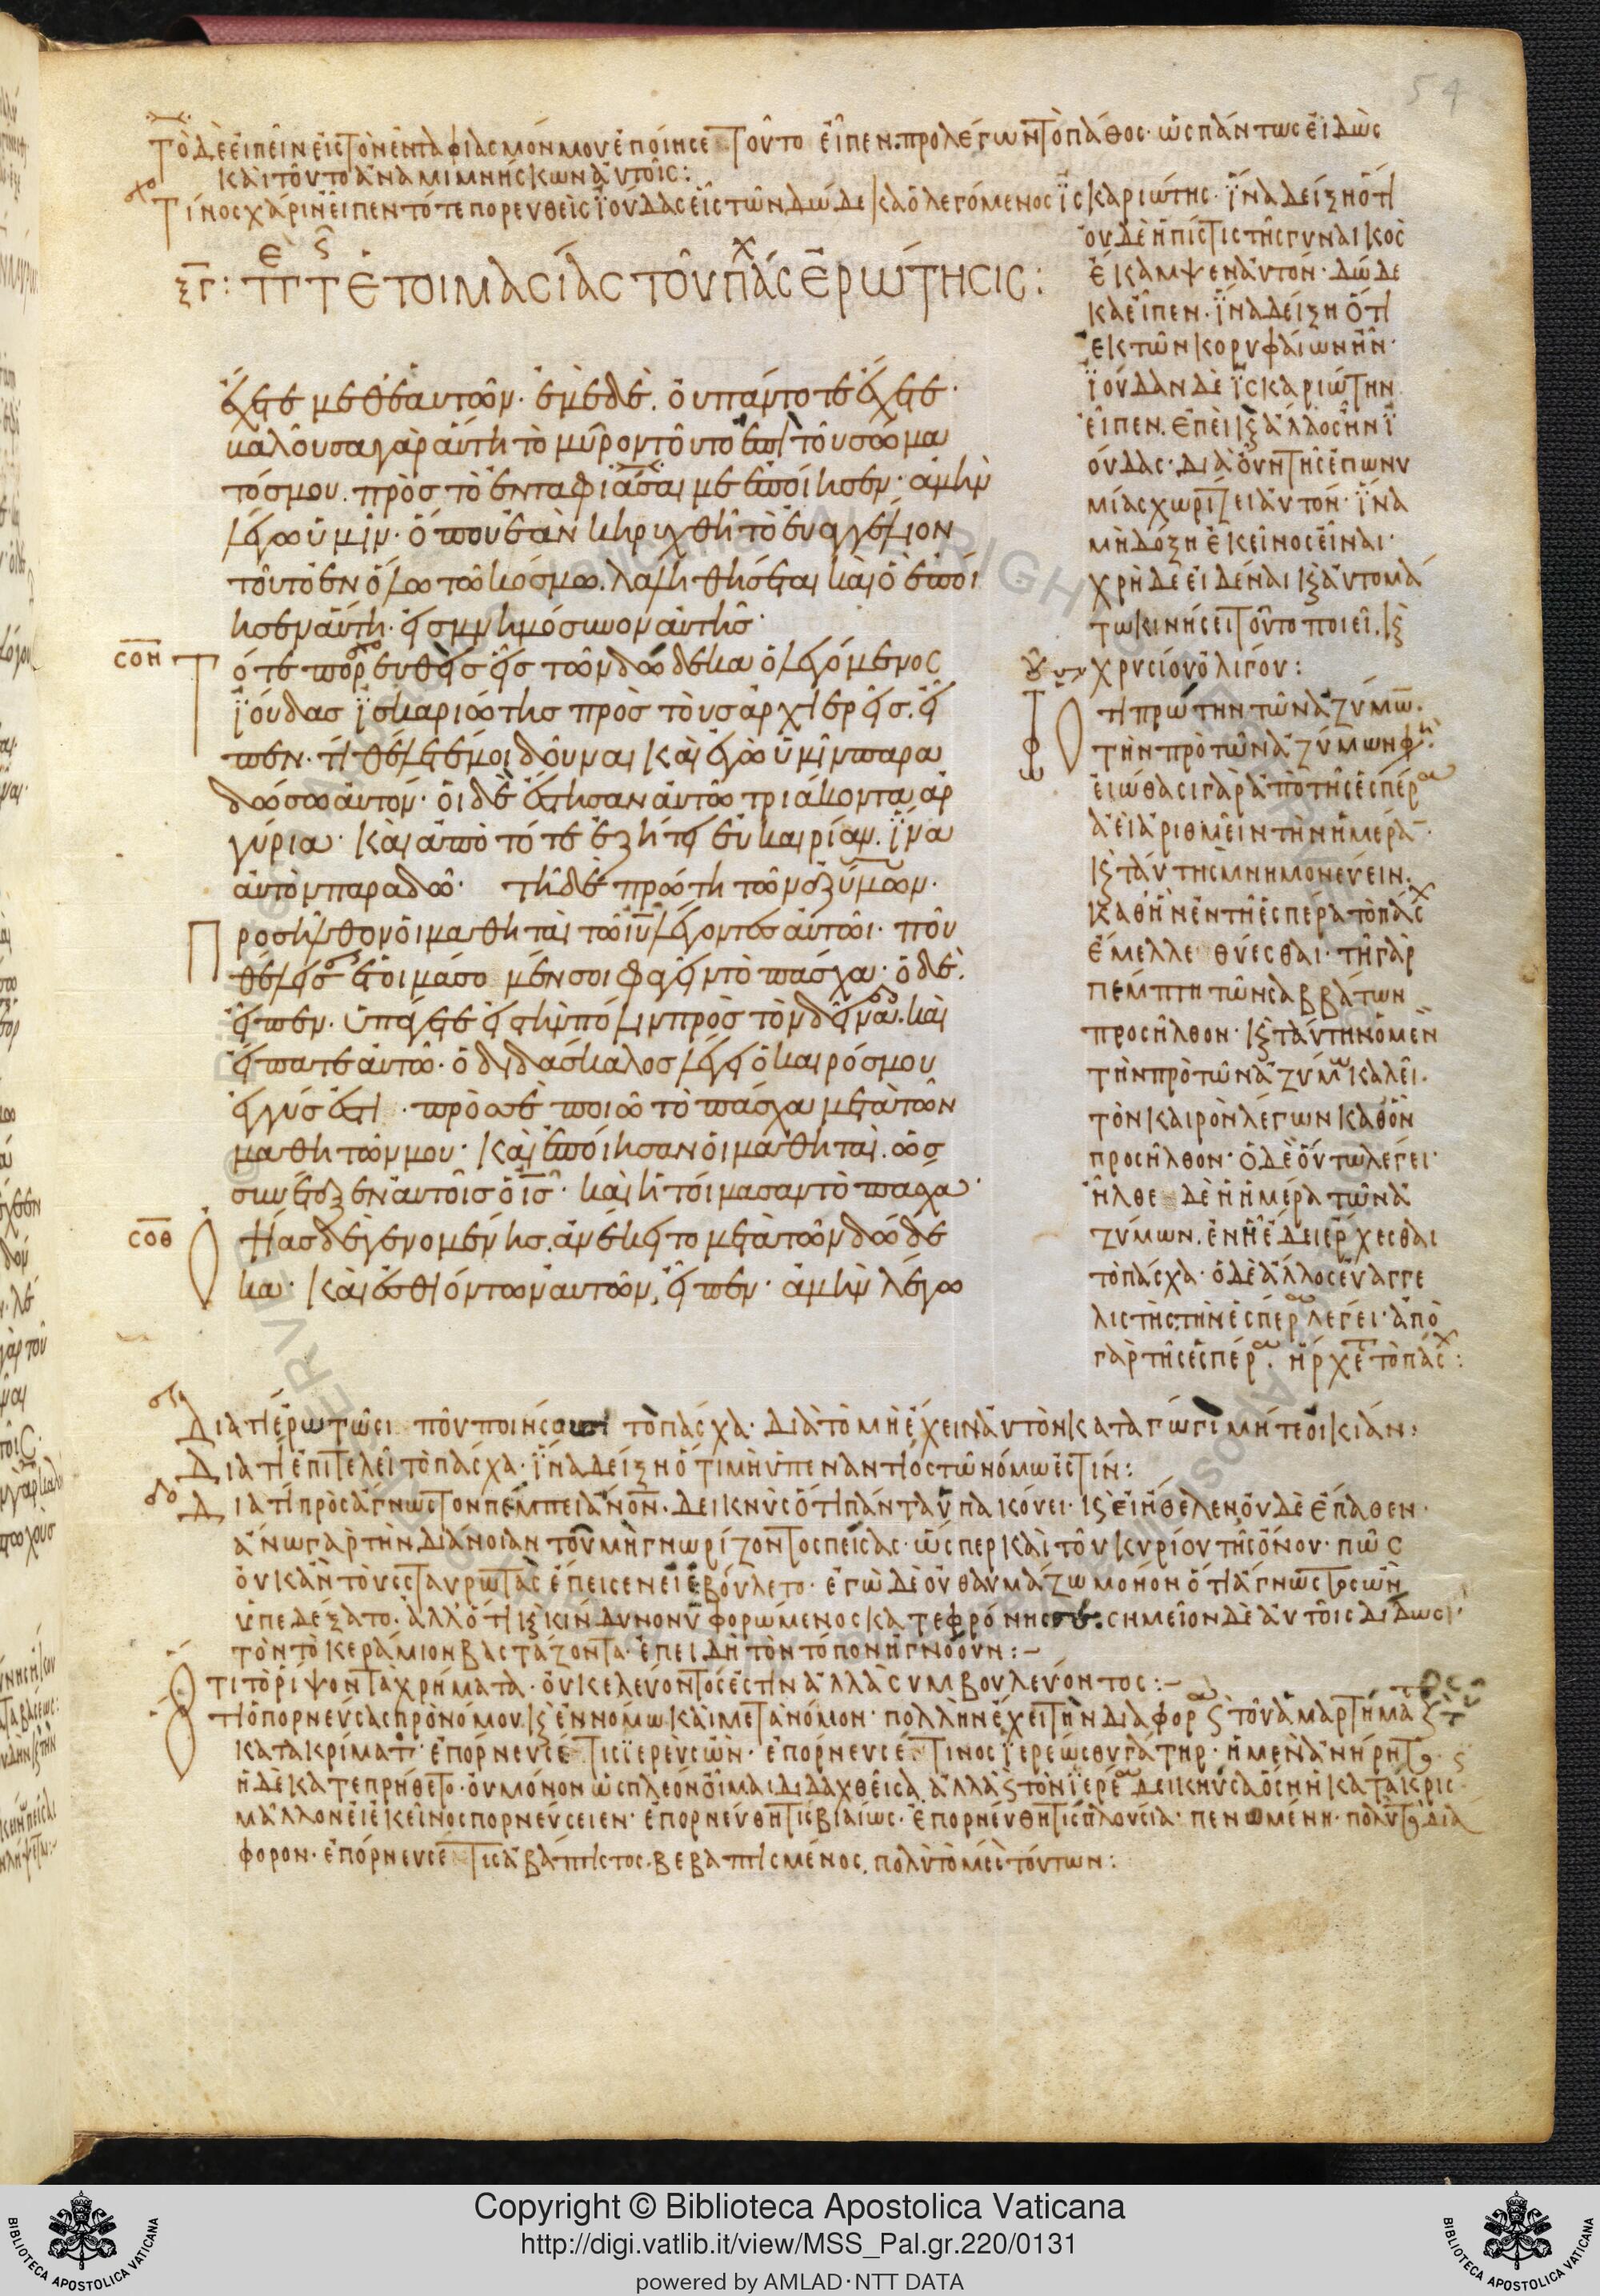 54
Τὸ δὲ εἰπεῖν εἰς τὸν ἐνταφιασμόν μου ἐποίησε τοῦτο εἶπεν. προλέγων τὸ πάθος· ὡς πάντως εἰδὼς
καὶ τοῦτο ἀναμιμνήσκων αὐτοῖς:
Τίνος χάριν εἶπεν τότε πορευθεὶς ϊούδας εἷς τῶν δώδεκα ὁ λεγόμενος ϊσκαριώτης· ἵνα δείξη ὅτι
οὐδὲ ἡ πίστις τῆς γυναικὸς
ἔκαμψεν αὐτόν· δώδε
κα εἶπεν. ἵνα δείξη ὅτι
ἐκ τῶν κορυφαίων ἦν·
ϊούδαν δὲ ϊσκαριώτην
εἶπεν. ἐπεὶ ϗ ἄλλος ἦν ϊ
ούδας· διὰ οὖν τῆς ἐπωνυ
μίας χωρίζει αὐτόν· ἵνα
μὴ δόξη ἐκεῖνος εἶναι·
χρὴ δὲ εἰδέναι ϗ αὐτομά
τω κινήσει τοῦτο ποιεῖ. ϗ
χρυσίου ὀλίγου:
ξγ: πτ ἑτοιμασίας τοῦ πάσ ἐρώτησις:
ἔχετε μεθ ἑαυτῶν· ἐμὲ δὲ. οὐ πάντοτε ἔχετε·
βαλοῦσα γὰρ αὕτη τὸ μῦρον τοῦτο ἐπὶ τοῦ σώμα
τός μου. πρὸς τὸ ἐνταφιάσαι με ἐποίησεν· ἀμὴν
λέγω ὑμῖν· ὅπου ἐὰν κηρυχθῆ τὸ εὐαγγέλιον
τοῦτο ἐν ὅλω τῶ κόσμω. λαληθήσεται καὶ ὃ ἐποί
ησεν αὕτη· εἰς μνημόσυνον αὐτῆς·
σοη Τότε πορευθεὶς εἷς τῶν δώδεκα ὁ λεγόμενος
ϊούδας ϊσκαριώτης πρὸς τοὺς ἀρχιερεῖς. εἶ
πεν· τί θέλετέ μοι δοῦναι καὶ ἐγὼ ὑμῖν παρα
δώσω αὐτόν· οἱ δὲ ἔστησαν αὐτῶ τριάκοντα ἀρ
γύρια· καὶ ἀπὸ τότε ἐζήτει εὐκαιρίαν. ἵνα
αὐτὸν παραδῶ· τῆ δὲ πρώτη τῶν ἀζύμων·
Προσῆλθον οἱ μαθηταὶ τῶ ιυ λέγοντες αὐτῶι· ποῦ
θέλεις ἑτοιμάσομέν σοι φαγεῖν τὸ πάσχα· ὁ δὲ.
εἶπεν. ὑπάγετε εἰς τὴν πόλιν πρὸς τὸν δεῖνα. καὶ
εἴπατε αὐτῶ· ὁ διδάσκαλος λέγει ὁ καιρός μου
ἐγγύς ἐστι. πρὸς σὲ ποιῶ τὸ πάσχα μετὰ τῶν
μαθητῶν μου· καὶ ἐποίησαν οἱ μαθηταὶ. ὡς
συνέταξεν αὐτοῖς ὁ ις· καὶ ἡτοίμασαν τὸ πάσχα·
σοθ Ὀψίας δὲ γενομένης. ἀνέκειτο μετὰ τῶν δώδε
κα· καὶ ἐσθιόντων αὐτῶν, εἶπεν· ἀμὴν λέγω
τὴν πρώτην τῶν ἀζύμω.
τὴν πρὸ τῶν ἀζύμων φη
εἰώθασι γὰρ ἀπὸ τῆς ἑσπέρα
ἀεὶ ἀριθμεῖν τὴν ἡμέρα
ϗ ταύτης μνημονεύειν.
καθ ἣν ἐν τῆ ἑσπέρα τὸ πάσχ
ἔμελλε θύεσθαι· τῆ γὰρ
πέμπτη τῶν σαββάτων
προσῆλθον· ϗ ταύτην ὁ μεν
τὴν πρὸ τῶν ἀζύμων καλεῖ.
τὸν καιρὸν λέγων καθ ὃν
προσῆλθον· ὁ δὲ οὕτω λέγει·
ἦλθε δὲ ἡ ἡμέρα τῶν ἀ
ζύμων. ἐν ἧ ἔδει ἔρχεσθαι
τὸ πάσχα· ὁ δὲ ἄλλος εὐαγγε
λιστὴς. τὴν ἑσπέρα λέγει· ἀπὸ
γὰρ τῆς ἑσπέρα. ἤρχετο πάσχ:
Διατί ἐρωτῶσι ποῦ ποιήσουσι τὸ πάσχα· διὰ τὸ μὴ ἔχειν αὐτὸν καταγώγι μήτε οἰκίαν:
Διατί ἐπιτελεῖ τὸ πάσχα· ἵνα δείξη ὅτι μὴ ὑπεναντίος τῶ νόμω ἐστίν:
Διατί πρὸς ἄγνωστον πέμπει ἀνον. δεικνὺς ὅτι πάντα ὑπακούει· ϗ εἰ ἤθελεν, οὐδὲ ἔπαθεν·
ἄνω γὰρ τὴν διάνοιαν τοῦ μὴ γνωρίζοντος πείσας· ὥσπερ καὶ τοῦ κυρίου τῆς ὄνου· πῶς
οὐκ ἂν τοὺς σταυρωτὰς ἔπεισεν εἰ ἐβούλετο· ἐγὼ δὲ οὐ θαυμάζω μόνον ὅτι ἄγνωστος ὢν
ὑπεδέξατο. ἀλλ ὅτι ϗ κίνδυνον ὑφορώμενος κατεφρόνησεν: σημεῖον δὲ αὐτοῖς δίδωσι
τὸν τὸ κεράμιον βαστάζοντα· ἐπειδὴ τὸν τόπον ἠγνόουν:-
Ὅτι τὸ ῥίψον τὰ χρήματα· οὐ κελεύοντός ἐστιν ἀλλὰ συμβουλεύοντος:-
Ὅτι ὁ πορνεύσας πρὸ νόμου. ϗ ἐν νόμω καὶ μετὰ νόμον· πολλὴν ἔχει τὴν διαφορ
κατακρίματι· ἐπόρνευσέ τις ϊερεὺς ὤν· ἐπόρνευσέ τινος ϊερέως θυγάτηρ·
μᾶλλον εἰ ἐκεῖνος πορνεύσειεν· ἐπορνεύθη τις βιαίως· ἐπορνεύθη τις πλουσία· πενομένη·
φορον· ἐπόρνευσέ τις ἀβάπτιστος. βεβαπτισμένος, πολὺ τὸ μέσ τούτων:
Copyright © Biblioteca Apostolica Vaticana
http://digi.vatlib.it/view/MSS_Pal.gr.220/0131
powered by AMLAD·NTT DATA
BIBLIOTECA APOSTOLICA VATICANA
BIBLIOTECA APOSTOLICA VATICANA